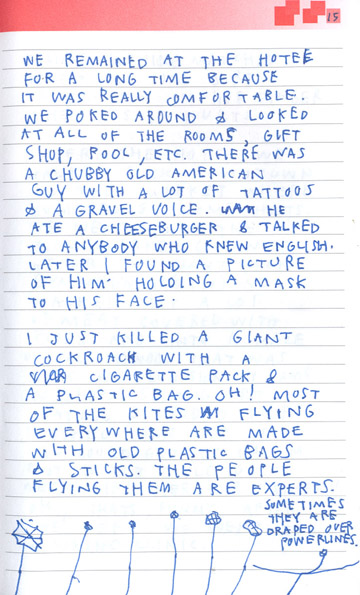 15
WE REMAINED AT THE HOTEL
FOR A LONG TIME BECAUSE
IT WAS REALLY COMFORTABLE.
WE POKED AROUND & LOOKED
AT ALL OF THE ROOMS, GIFT
SHOP, POOL, ETC. THERE WAS
A CHUBBY OLD AMERICAN
GUY WITH A LOT OF TATTOOS
& A GRAVEL VOICE. HE
ATE A CHEESEBURGER & TALKED
TO ANYBODY WHO KNEW ENGLISH.
LATER I FOUND A PICTURE
OF HIM HOLDING A MASK
TO HIS FACE.
I JUST KILLED A GIANT
COCKROACH WITH A
CIGARETTE PACK &
A PLASTIC BAG. OH! MOST
OF THE KITES FLYING
EVERYWHERE ARE MADE
WITH OLD PLASTIC BAGS
& STICKS. THE PEOPLE
FLYING THEM ARE EXPERTS.
SOMETIMES
THEY ARE
DRAPED OVER
POWERLINES.